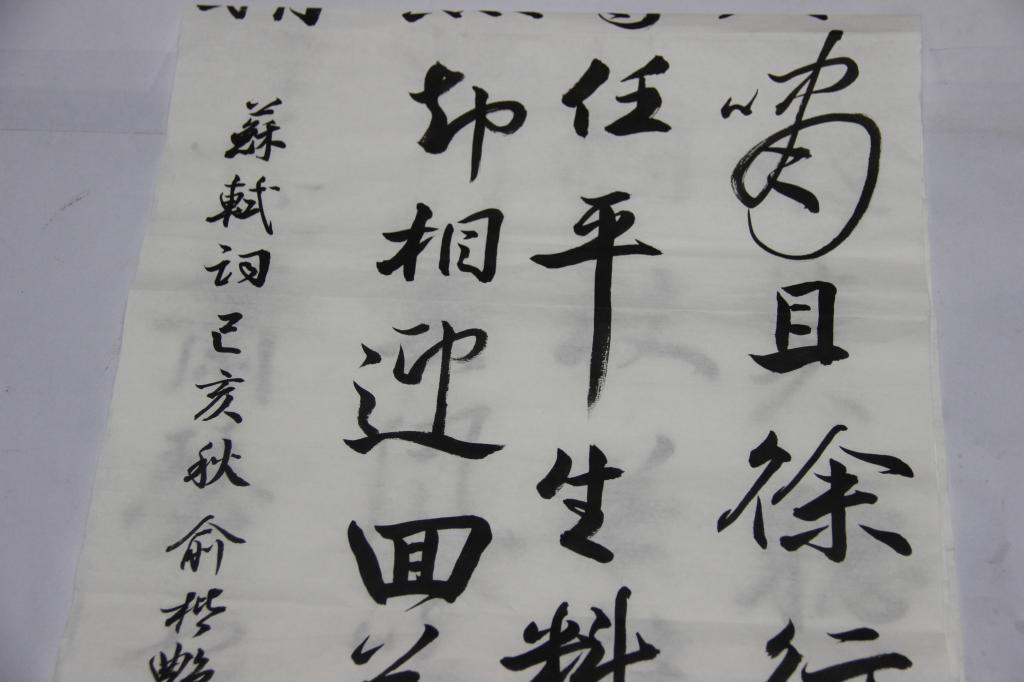 嘯且徐行
任平生料
却相迎回首
蘇軾詞己亥秋俞楷艷